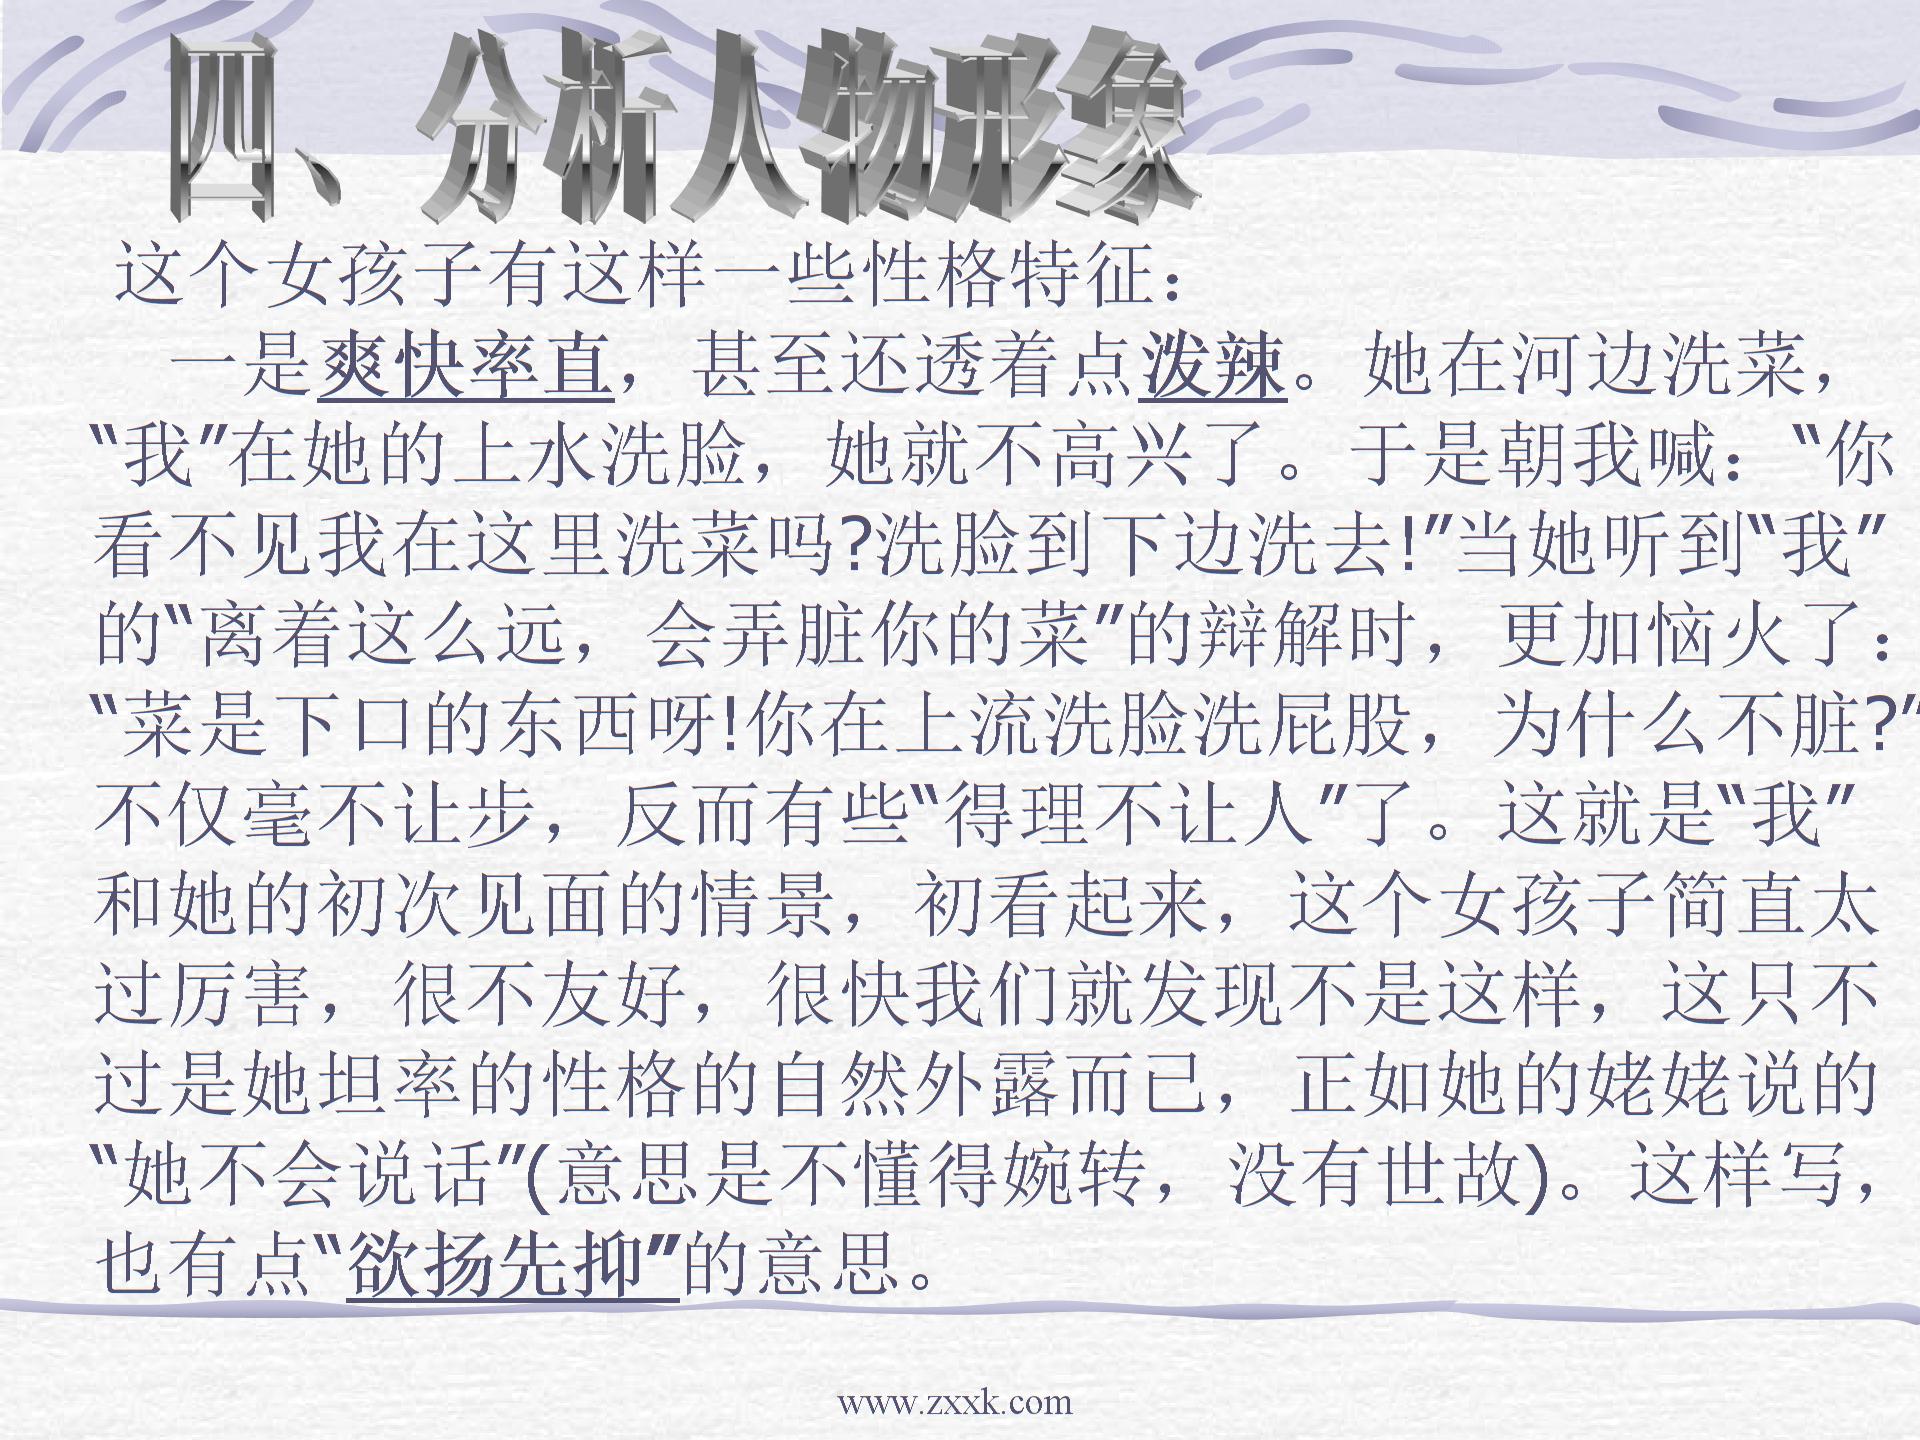 四、分析人物形象
这个女孩子有这样一些性格特征：
一是爽快率直，甚至还透着点泼辣。她在河边洗菜，
“我”在她的上水洗脸，她就不高兴了。于是朝我喊：“你
看不见我在这里洗菜吗?洗脸到下边洗去!”当她听到“我”
的“离着这么远，会弄脏你的菜”的辩解时，更加恼火了：
“菜是下口的东西呀!你在上流洗脸洗屁股，为什么不脏?”
不仅毫不让步，反而有些“得理不让人”了。这就是“我”
和她的初次见面的情景，初看起来，这个女孩子简直太
过厉害，很不友好，很快我们就发现不是这样，这只不
过是她坦率的性格的自然外露而已，正如她的姥姥说的
“她不会说话”(意思是不懂得婉转，没有世故)。这样写，
也有点“欲扬先抑”的意思。
www.zxxk.com